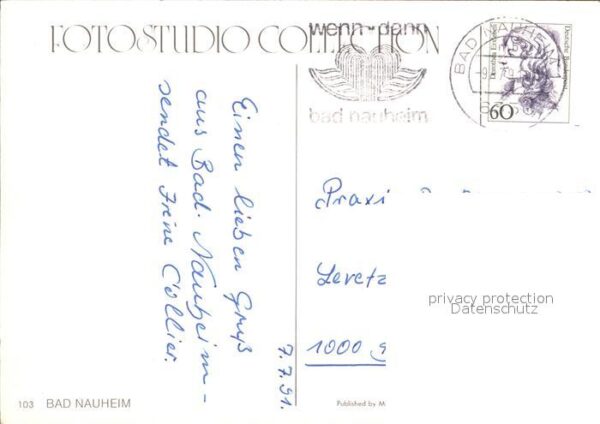 FOTOSTUDIO COLLECTION
wenn - dann
bad nauheim
BAD NAUHEIM
Deutsche Bundespost
60
Einen lieben Gruß
aus Bad. Nauheim -
sendet Irene Collier.
7.7.91.
Praxi
Levetz
1000
privacy protection
Datenschutz
103 BAD NAUHEIM
Published by M